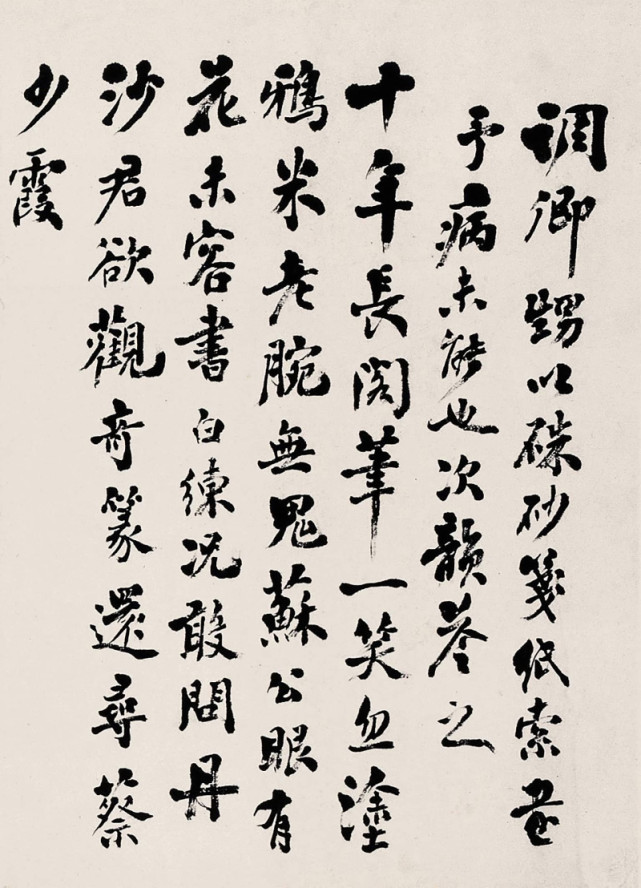 調卿甥以硃砂箋紙索書
予病未能也次韻答之
十年長閣筆一笑忽塗
鴉米老腕無鬼蘇公眼有
花未容書白練况敢問丹
沙君欲觀奇篆還尋蔡
少霞